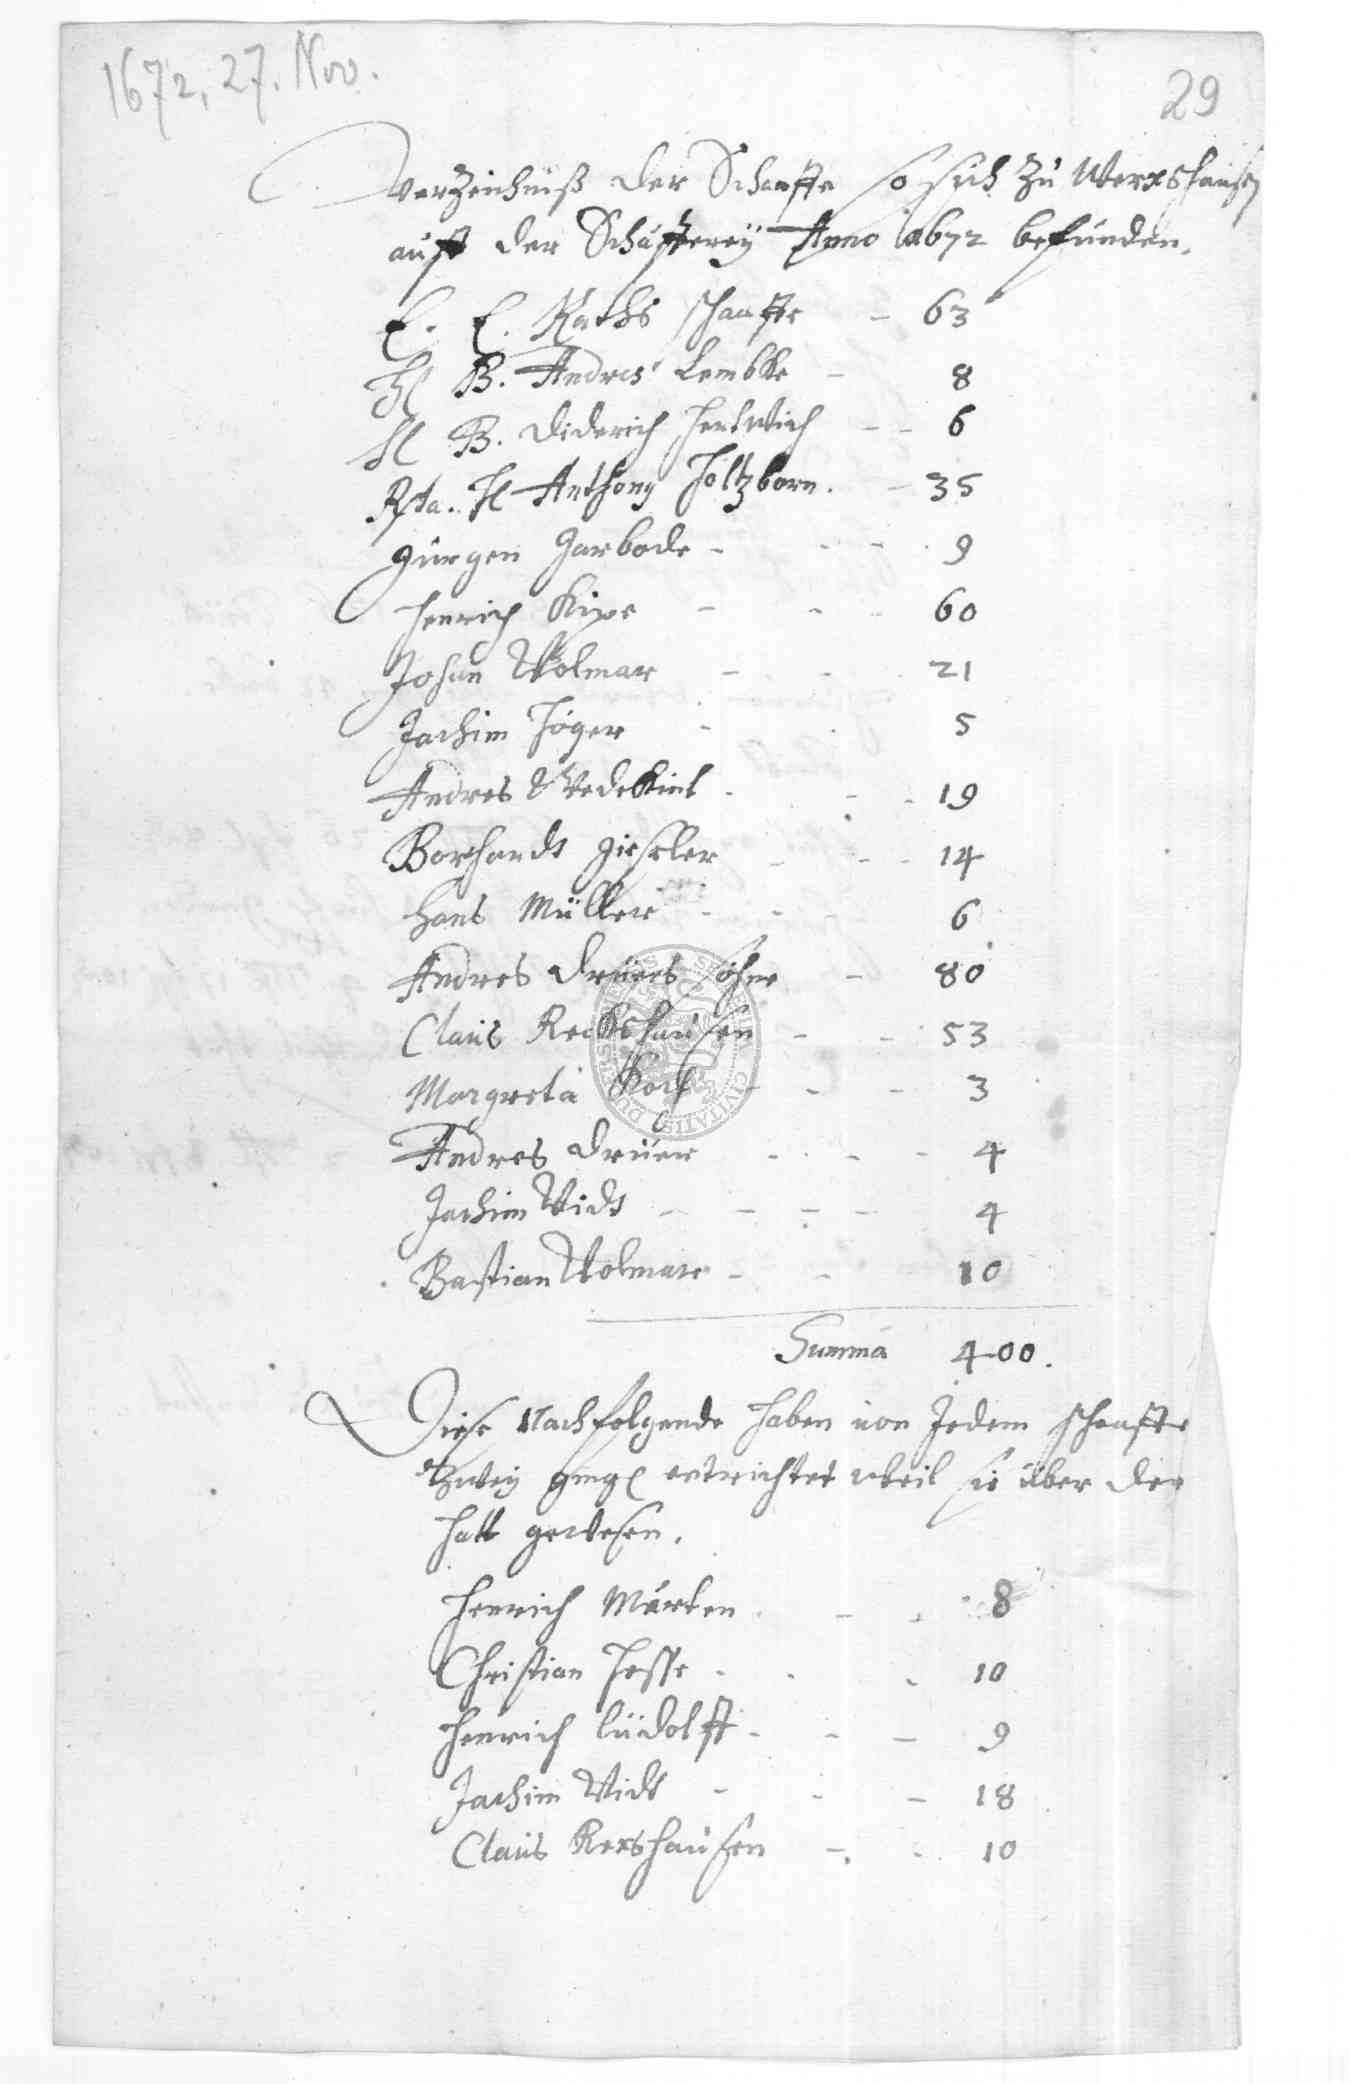 1672, 27. Nov.
29
Verzeichnüß der Schaaffe so sich zu Werxshausen
auff der Schäfferey Anno 1672 befunden.
E. E. Raths schaaffe - 63
H B. Andres Lembke - 8
H B. Diderich Hertwich - - 6
H Anthony Holtzborn. - 35
Jürgen Garbode - - - 9
Henrich Kipe - - - 60
Johan Wolmar - - 21
Jachim Höger - 5
Andres Wedekint - - - 19
Borchardt Gieseler - - - 14
Hans Müller - - - 6
Andres Drüers söhne - 80
Claus Reckshausen - - 53
Margreta Koch - - - 3
Andres Drüer - - - 4
Jachim Vidt - - - - 4
Bastian Wolmar - - 10
Summa 400.
Diese Nachfolgende haben von Jedem schaaffe
Zwey entrichtet weil sie über der
satt gewesen.
Henrich Märten - - - 8
Christian Hesse - - - 10
Henrich Lüdolff - - - 9
Jachim Vidt - - - 18
Claus Rexshausen - - 10
SIGILLUM CIVITATIS